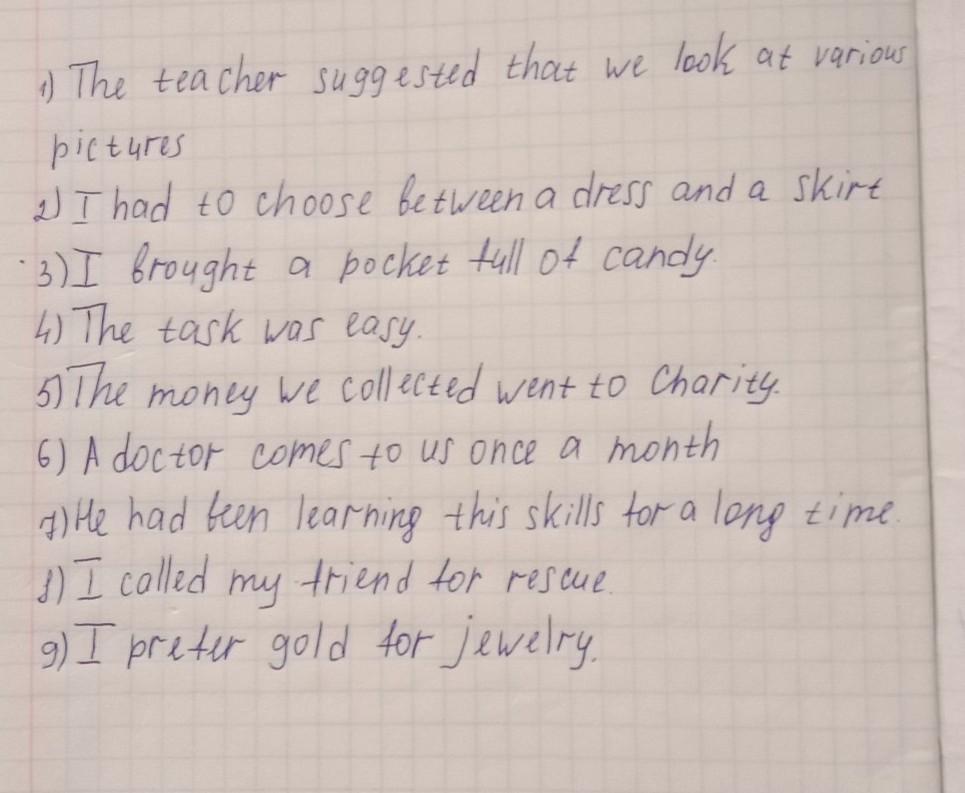 1) The teacher suggested that we look at various
pictures
2) I had to choose between a dress and a skirt
3) I brought a pocket full of candy.
4) The task was easy.
5) The money we collected went to Charity.
6) A doctor comes to us once a month
7) He had been learning this skills for a long time.
8) I called my friend for rescue.
9) I prefer gold for jewelry.